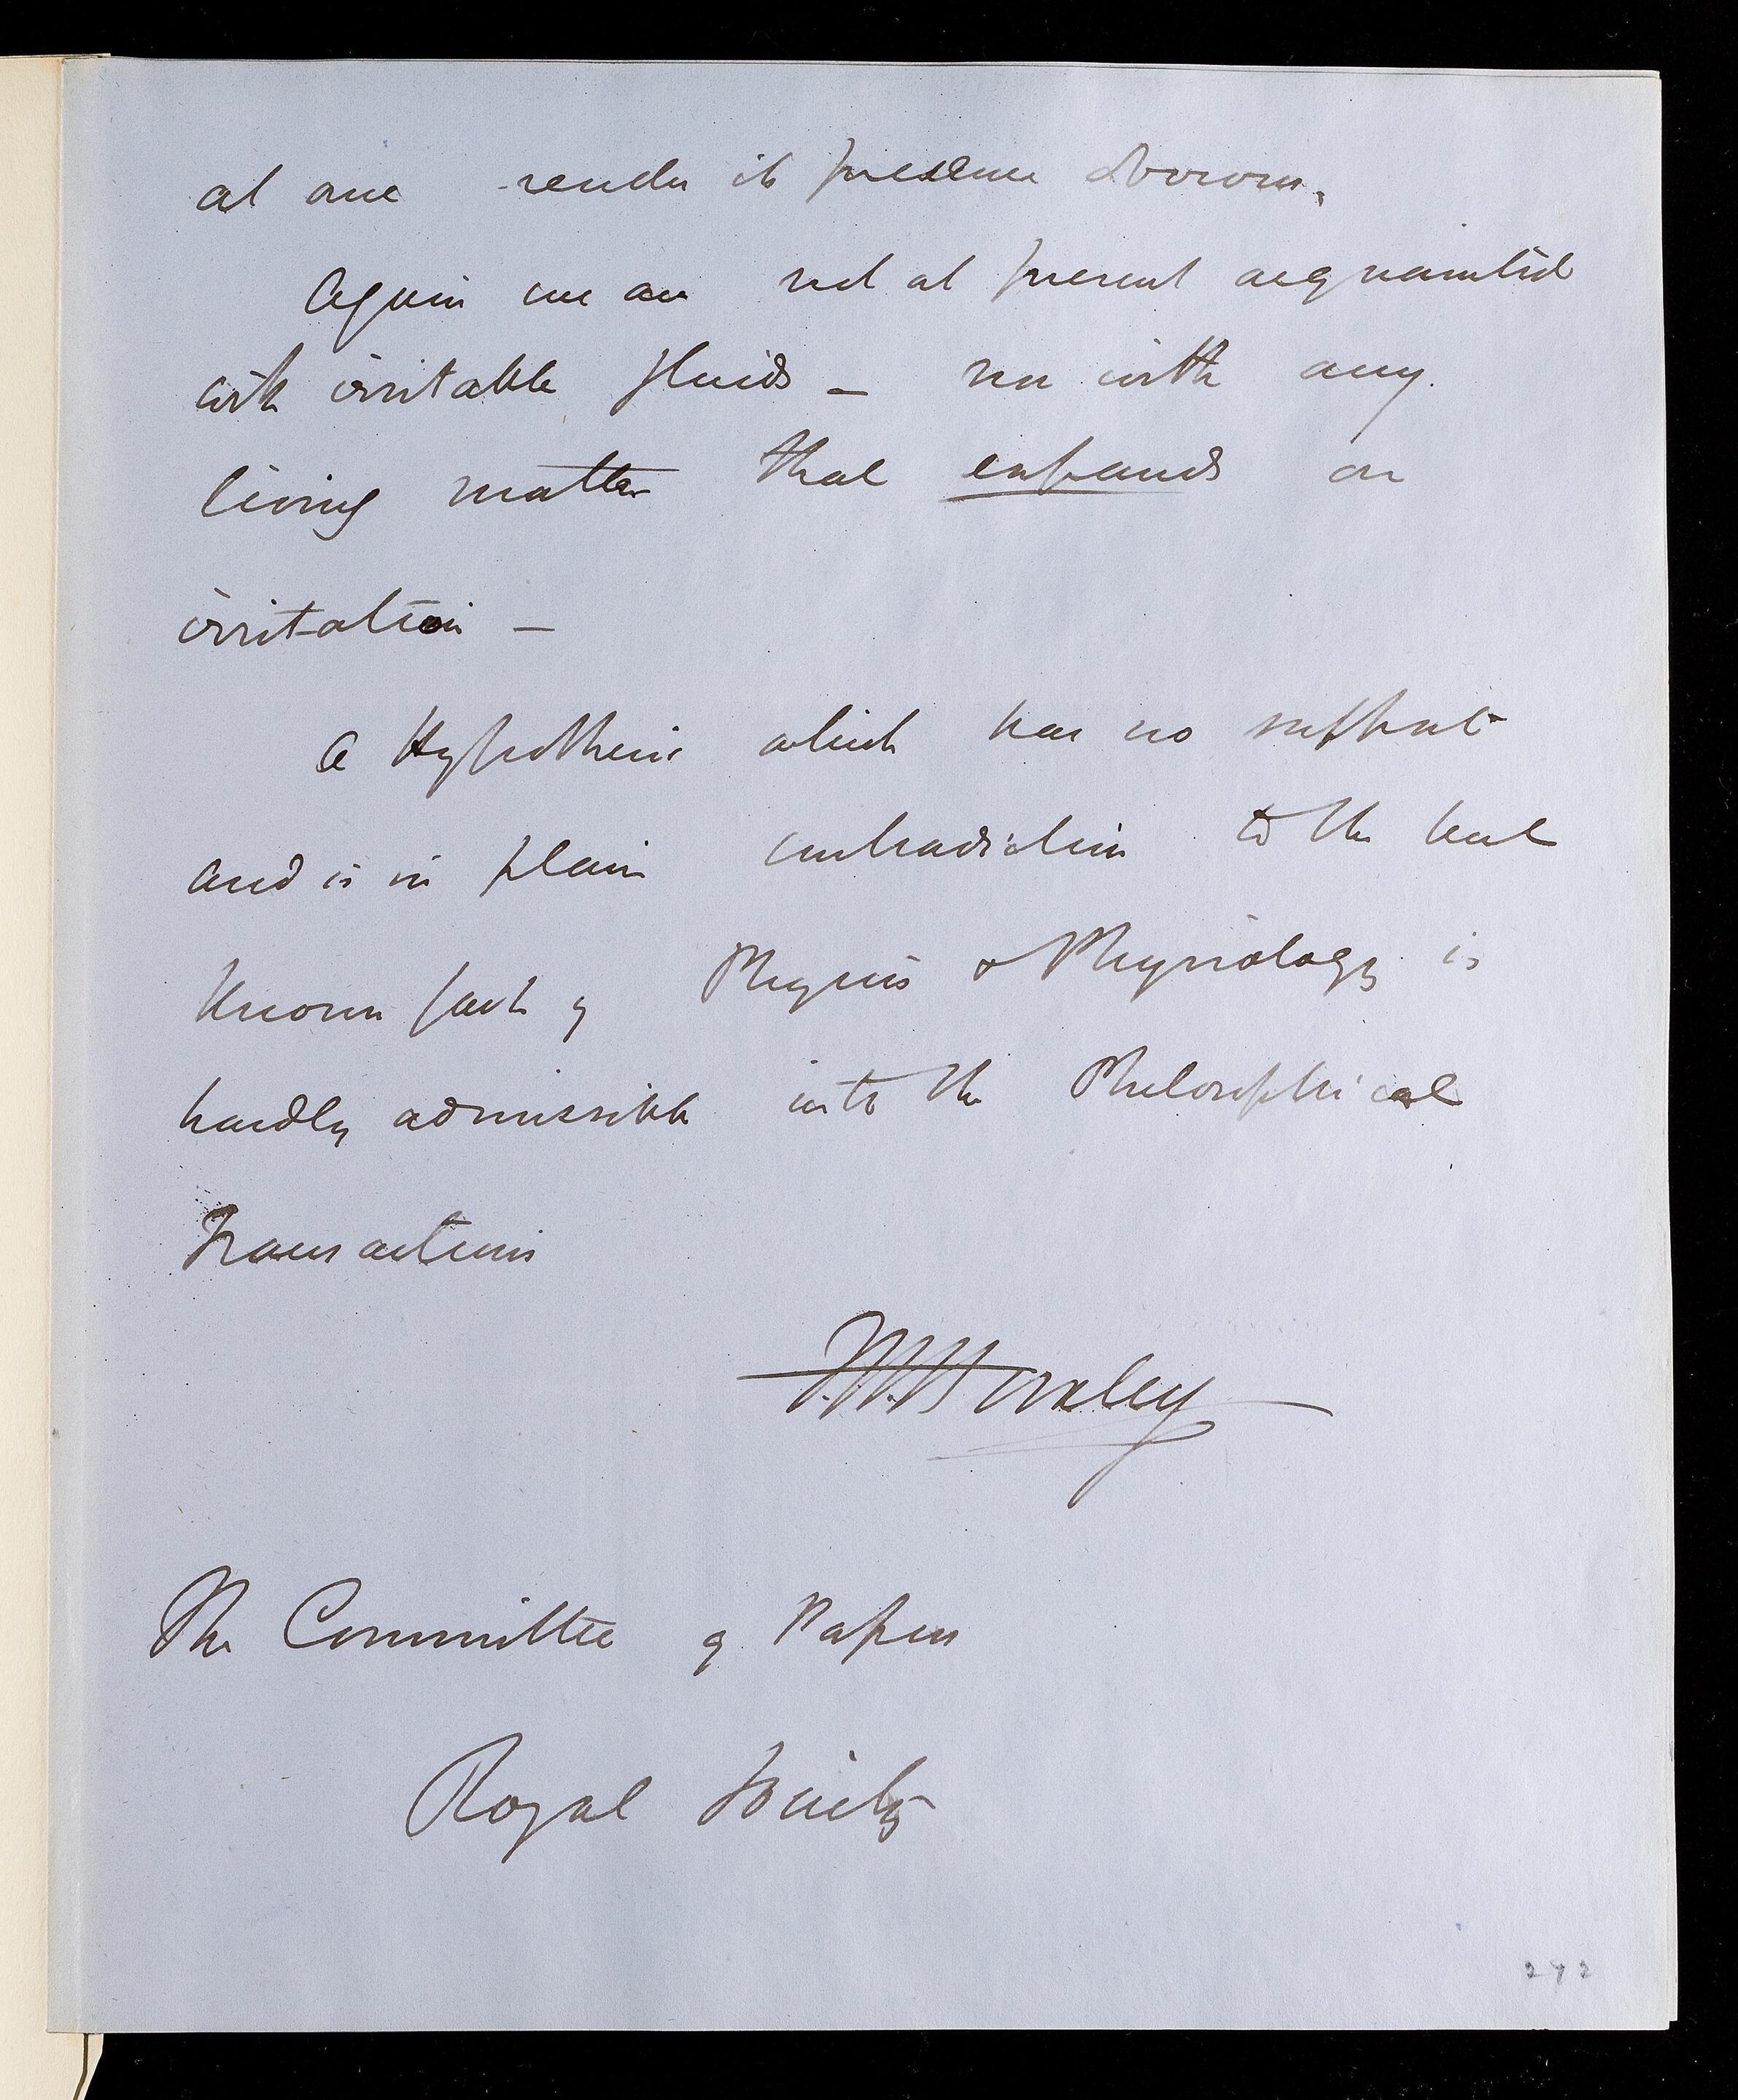 at once render its presence obvious.
Again we are not at present acquainted
with irritable fluids — nor with any
living matter that expands on
irritation —
A Hypothesis which has no support
and is in plain contradiction to the best
known facts of Physics & Physiology is
hardly admissible into the Philosophical
Transactions
T.H. Huxley
The Committee of Papers
Royal Society
272